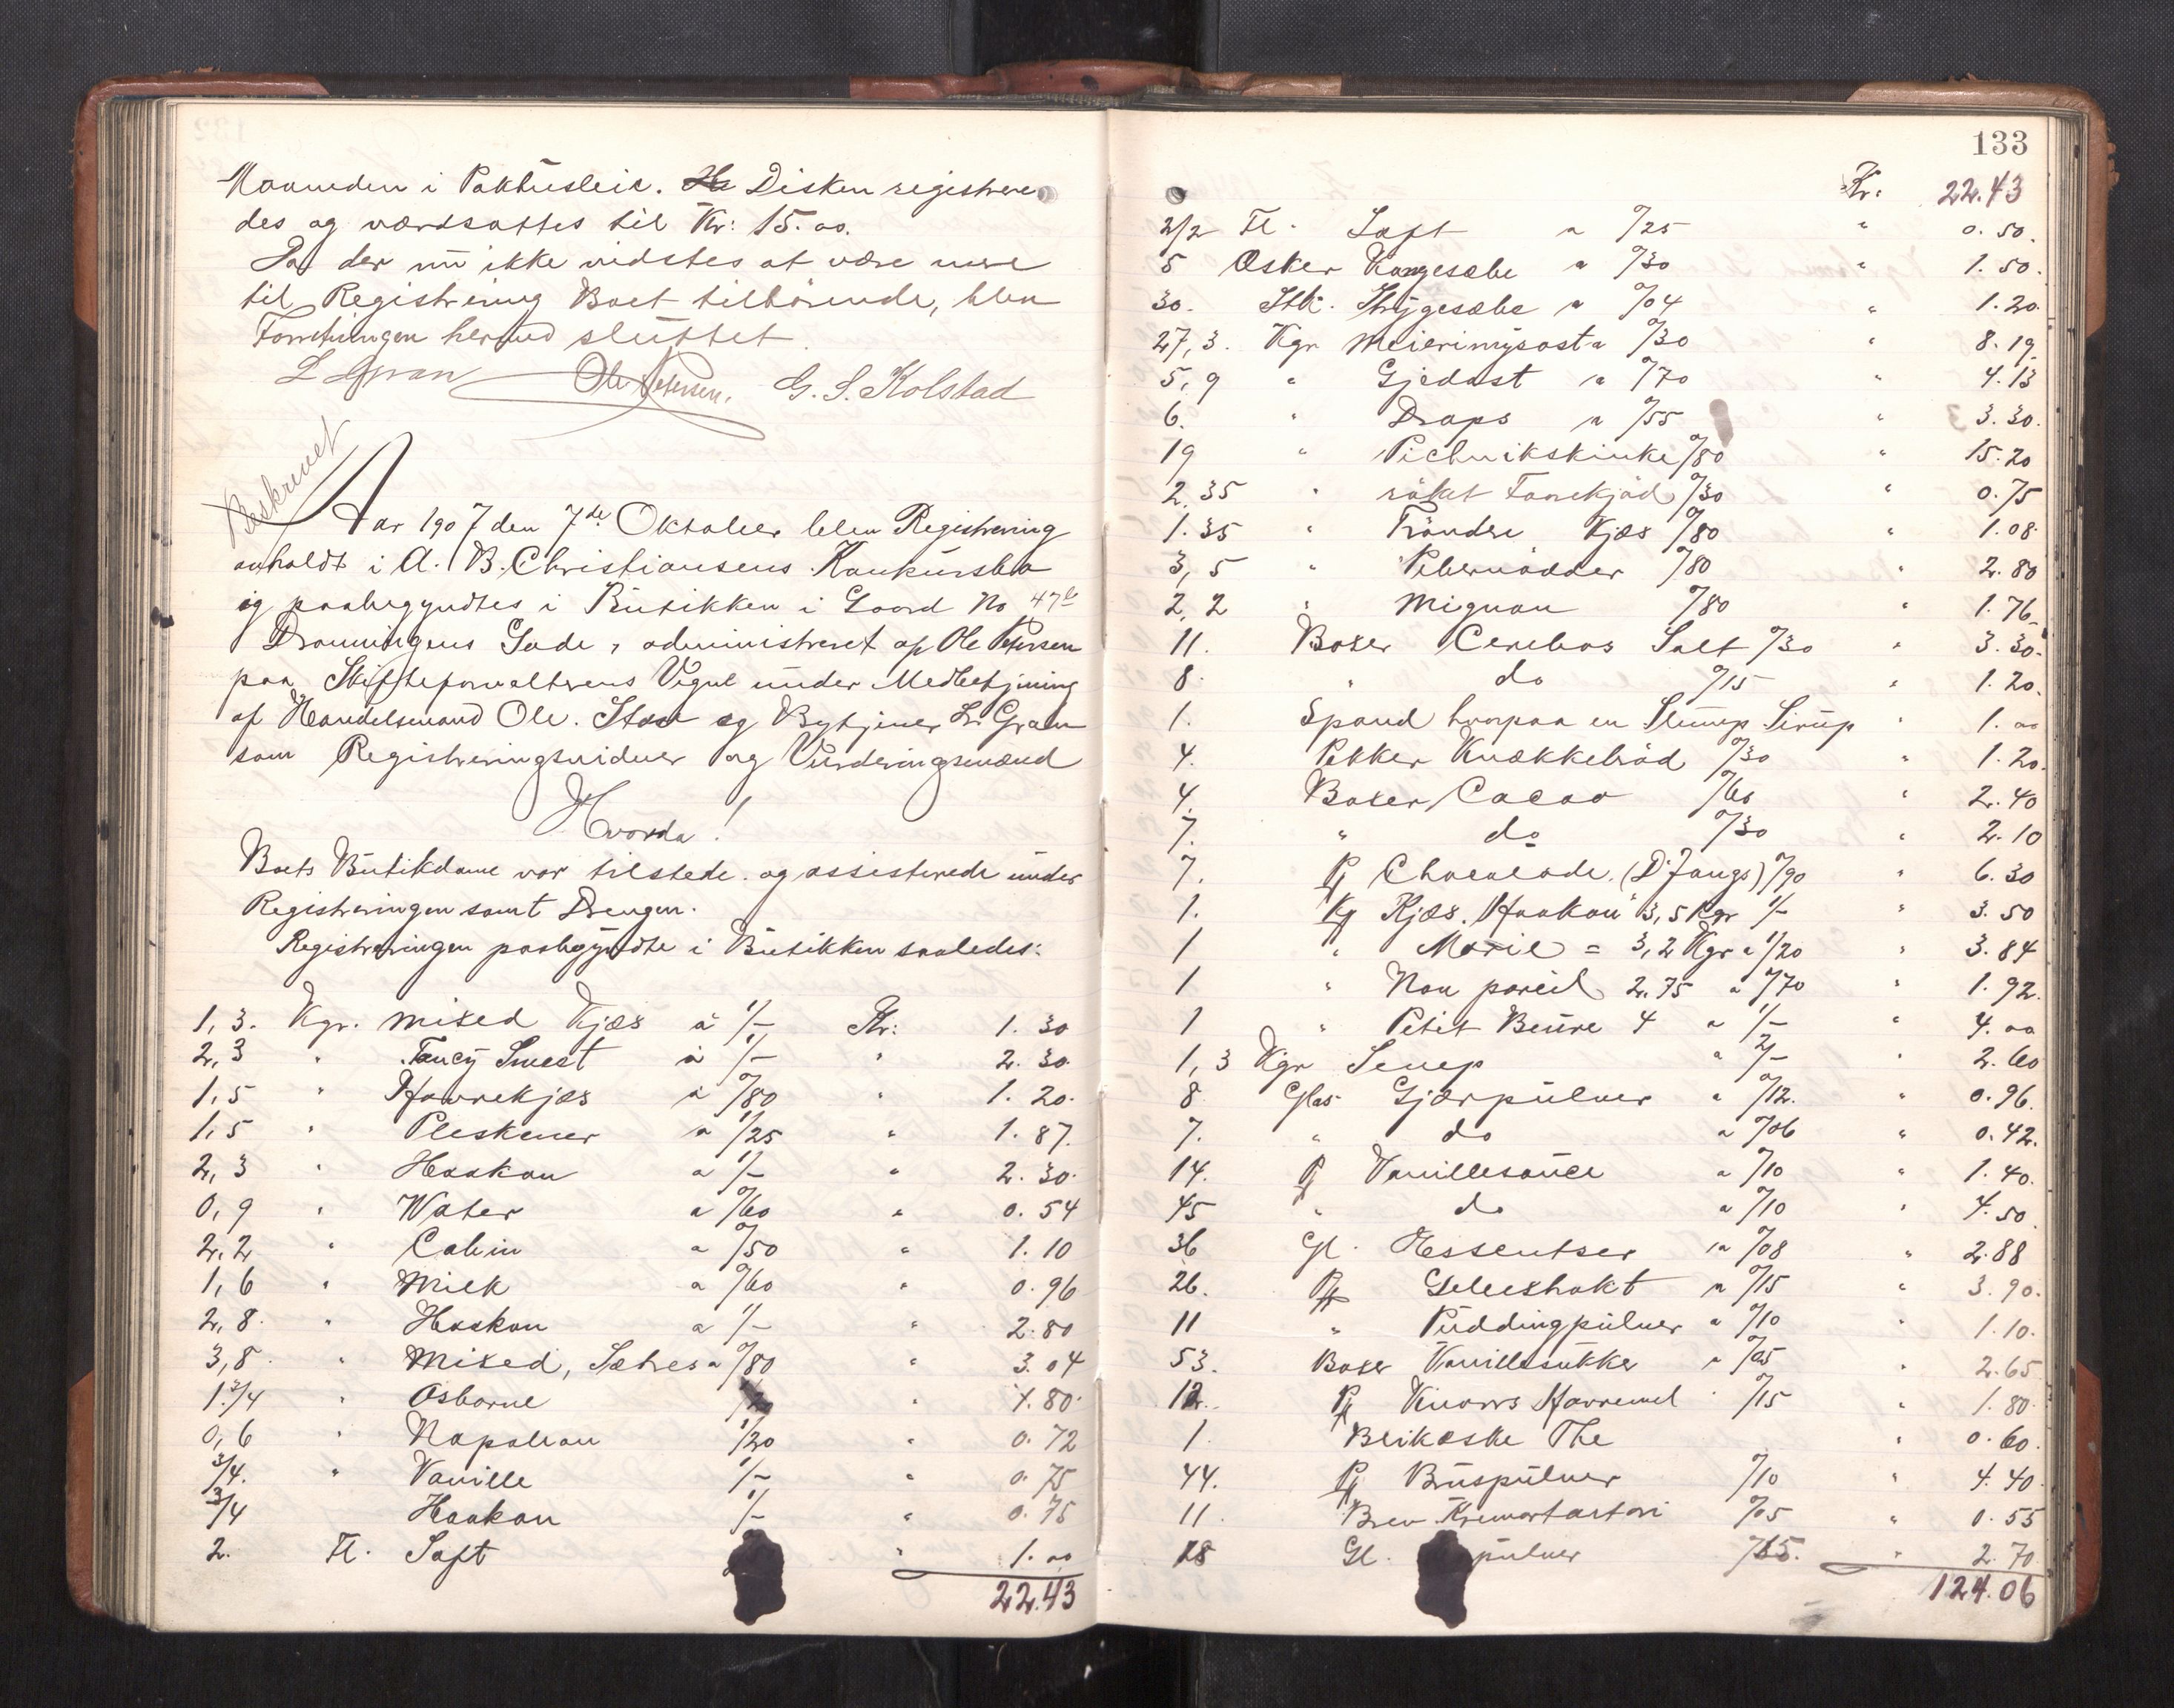 Maaneden i Pakhusleie. Disken registrere
des og værdsattes til Kr: 15.00.
Da der nu ikke vidstes at være mere
til Registrering Boet tilhörende, blev
Forretningen hermed sluttet.
L Gran Ole Petersen. G. S. Kolstad
Beskrevet
Aar 1907 den 7de Oktober blev Registrering
anholdt i A. B. Christiansens Konkursbo
og paabegyndtes i Butikken i Gaard No 47b
Dronningens Gade, administreret af Ole Petersen
paa Skifteforvalterens Vegne under Medbetjening
af Handelsmand Ole. og Bytjener L. Gran
som Registreringsvidner og Vurderingsmænd
Hvorda!
Boets Butikdame var tilstede og assisterede under
Registreringen samt Drengen.
Registreringen paabegyndte i Butikken saaledes:
1,3. Kgr. mixed Kjæs à 1/- Kr: 1. 30
2,3 " Fancy Sweet à 1/- " 2. 30
1,5 " Havrekjæs à 0/80 " 1. 20.
1,5 " Pleskener a 1/25 " 1. 87.
2,3 " Haakon a 1/- " 2. 30.
0,9 " Water a 0/60 " 0. 54
2,2 " Cabin a 0/50 " 1. 10
1,6 " Milk a 0/60 " 0. 96
2,8. " Haakon a 1/- " 2. 80
3,8. " Mixed, Sætres a 0/80 " 3. 04
1.3/4 " Osborne " 1. 80.
0,6 " Napoleon 1/20 " 0. 72
3/4. " Vanille 1/- " 0. 75
3/4 " Haakon 1/- " 0. 75
2. Fl. Saft " 1. 00
22.43
133
Kr: 22.43
2/2 Fl. Saft a 0/25 " 0. 50.
5 Æsker Kongesæbe a 0/30 " 1. 50.
30. Stk. Strygesæbe a 0/04 " 1. 20.
27,3. Kgr Meierimysost a 0/30 " 8. 19
5,9 " Gjedost a 0/70 " 4. 13
6. " Drops a 0/55 " 3. 30.
19 " Pichnikskinke 0/80 " 15. 20
2,35 " rökt Faarekjöd 0/30 " 0. 75
1.35 " Tröndre Kjæs 0/80 " 1. 08.
3,5 " Pebernödder 0/80 " 2. 80
2,2 " Mignon 0/80 " 1. 76
11. Boxer Cerebos Salt 0/30 " 3. 30.
8. " do 0/15 " 1. 20.
1. Spand hvorpaa en Slump Sirup " 1. 00
4. Pakker Knækkebröd 0/30 " 1. 20.
4. Boxer Cacao 0/60 " 2. 40
7. " do 0/30 " 2. 10
7. Pg Chocolade. 0/90 " 6. 30
1. Kg Kjæs. "Haakon" 3,5 Kgr 1/- " 3. 50
1 " Marie = 3,2 Kgr a 1/20 " 3. 84
1 " Non pareil 2.75 a 0/70 " 1. 92.
1 " Petit Beure 4 a 1/- " 4. 00
1,3 Kgr Senep " 2/- " 2. 60
8 Glas Gjærpulver " 0/12. " 0. 96.
7. " do a 0/06 " 0. 42.
14. Pg Vanillesauce a 0/10 " 1. 40.
45 " do a 0/10 " 4. 50
36 Gl. Æssentser a 0/08 " 2. 88
26. Pg Geleextrakt a 0/15 " 3. 90.
11 " Puddingpulver a 0/10 " 1. 10.
53. Boxer Vanillesukker a 0/05 " 2. 65
12. Pg Knorrs Havremel 0/15 " 1. 80
1. Blikæske The " 0. 60.
44. Pg Bruspulver 0/10 " 4. 40
11. Brev Kremortartari 0/05 " 0. 55
18 Gl. pulver 0/15. " 2. 70
124.06